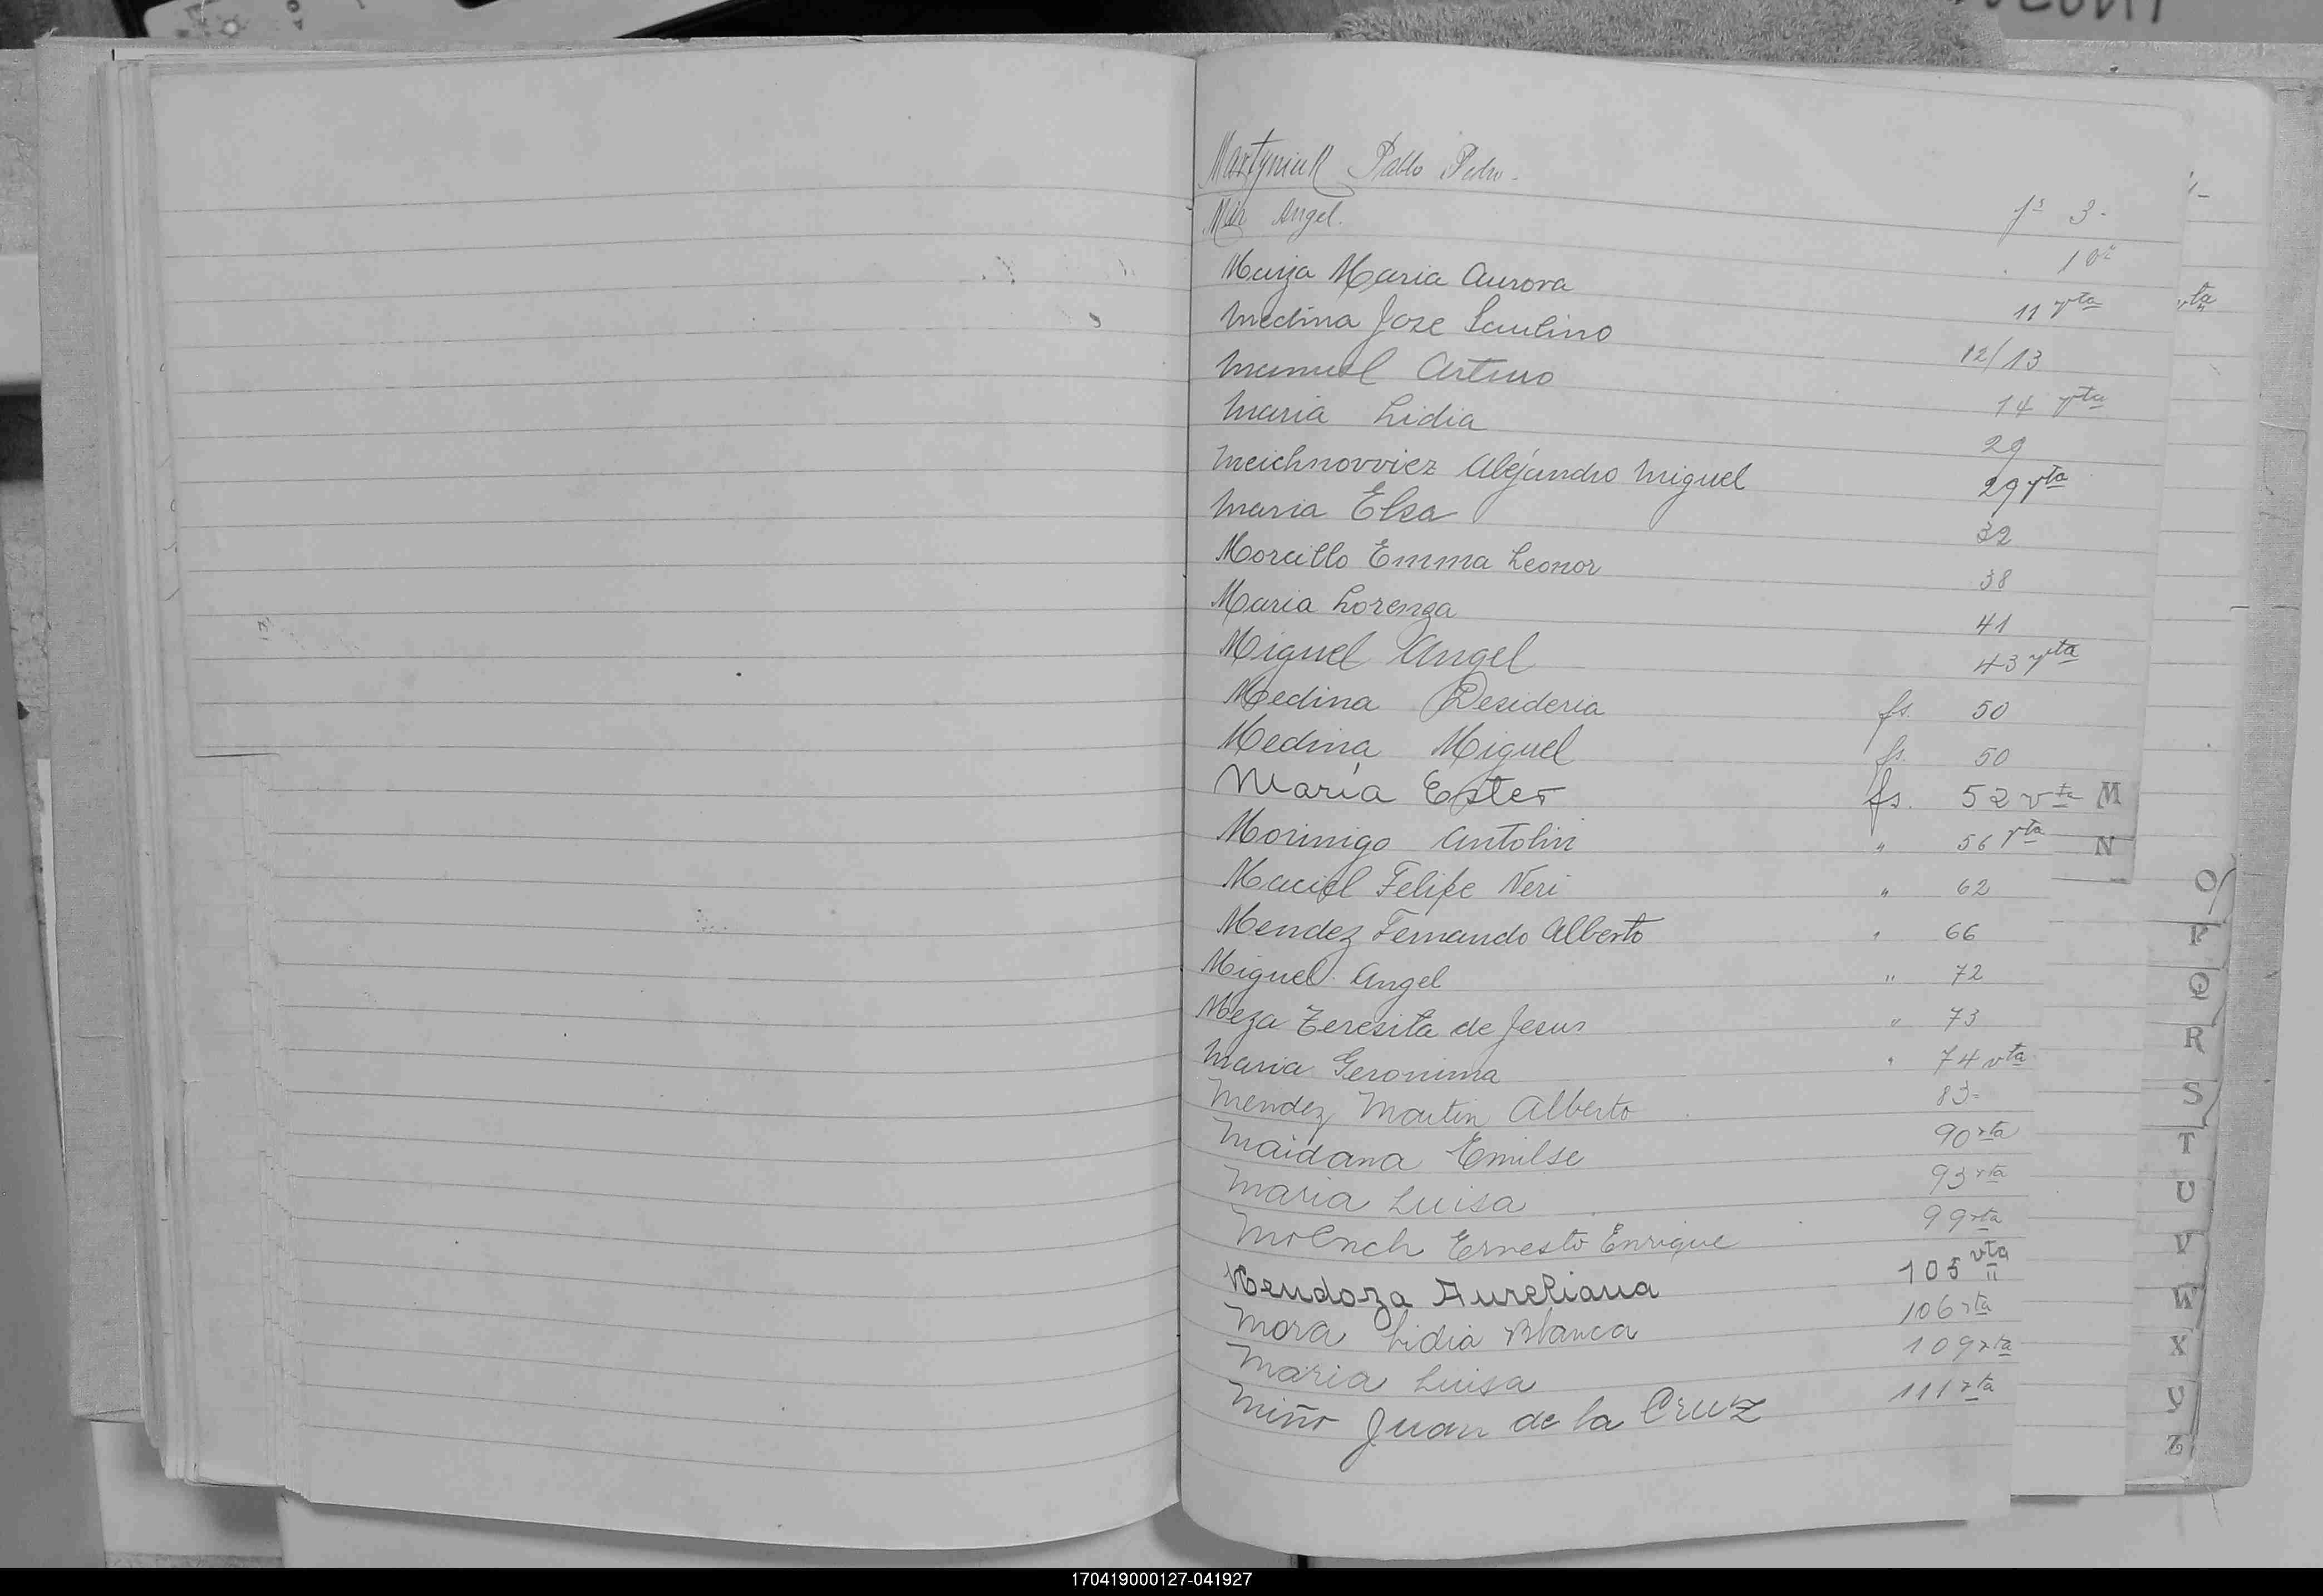 Martyniuk Pablo Pedro - fs 3-
Mir Angel. 10
Mauza Maria Aurora 11 vta
Medina Jose Paulino 12/13
Manuel Arturo 14 vta
Maria Lidia 29
Meichnovviez Alejandro Miguel 29 vta
Maria Elsa 32
Morcillo Emma Leonor 38
Maria Lorenza 41
Miguel Angel 43 vta
Medina Desideria fs. 50
Medina Miguel fs. 50
María Ester fs. 52 vta
Morinigo Antolin " 56 vta
Maciel Felipe Neri " 62
Mendez Fernando Alberto " 66
Miguel Angel " 72
Meza Teresita de Jesus " 73
Maria Geronima " 74 vta
Mendez Martin Alberto 83-
Maidana Emilse 90 vta
Maria Luisa 93 vta
Molnch Ernesto Enrique 99 vta
Mendoza Aureliana 105 vta
Mora Lidia Blanca 106 vta
Maria Luisa 109 vta
Miño Juan de la Cruz 111 vta
vta
M
N
O
P
Q
R
S
T
U
V
W
X
Y
Z
170419000127-041927